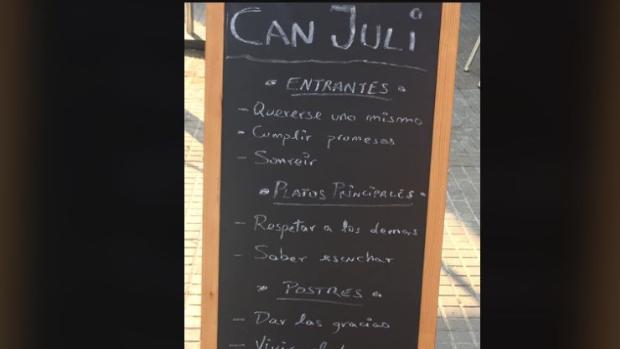 CAN JULI
ENTRANTES
- Quererse uno mismo
- Cumplir promesas
- Sonreir
PLATOS PRINCIPALES
- Respetar a los demas
- Saber escuchar
POSTRES
- Dar las gracias